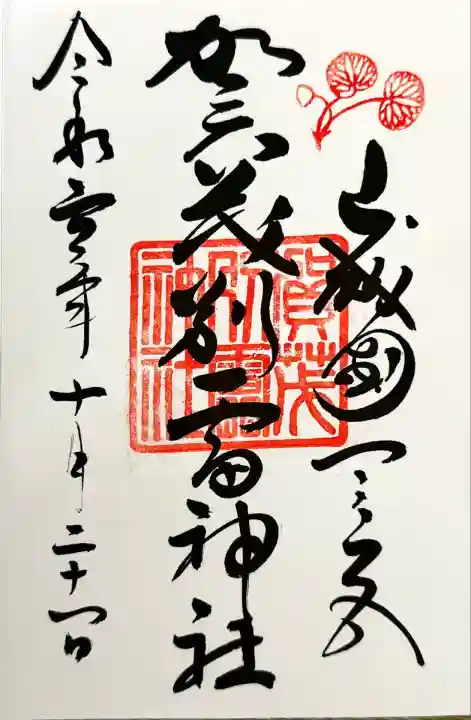 山城國一之宮
賀茂別雷神社
賀茂別雷神社
令和壹年十月二十一日